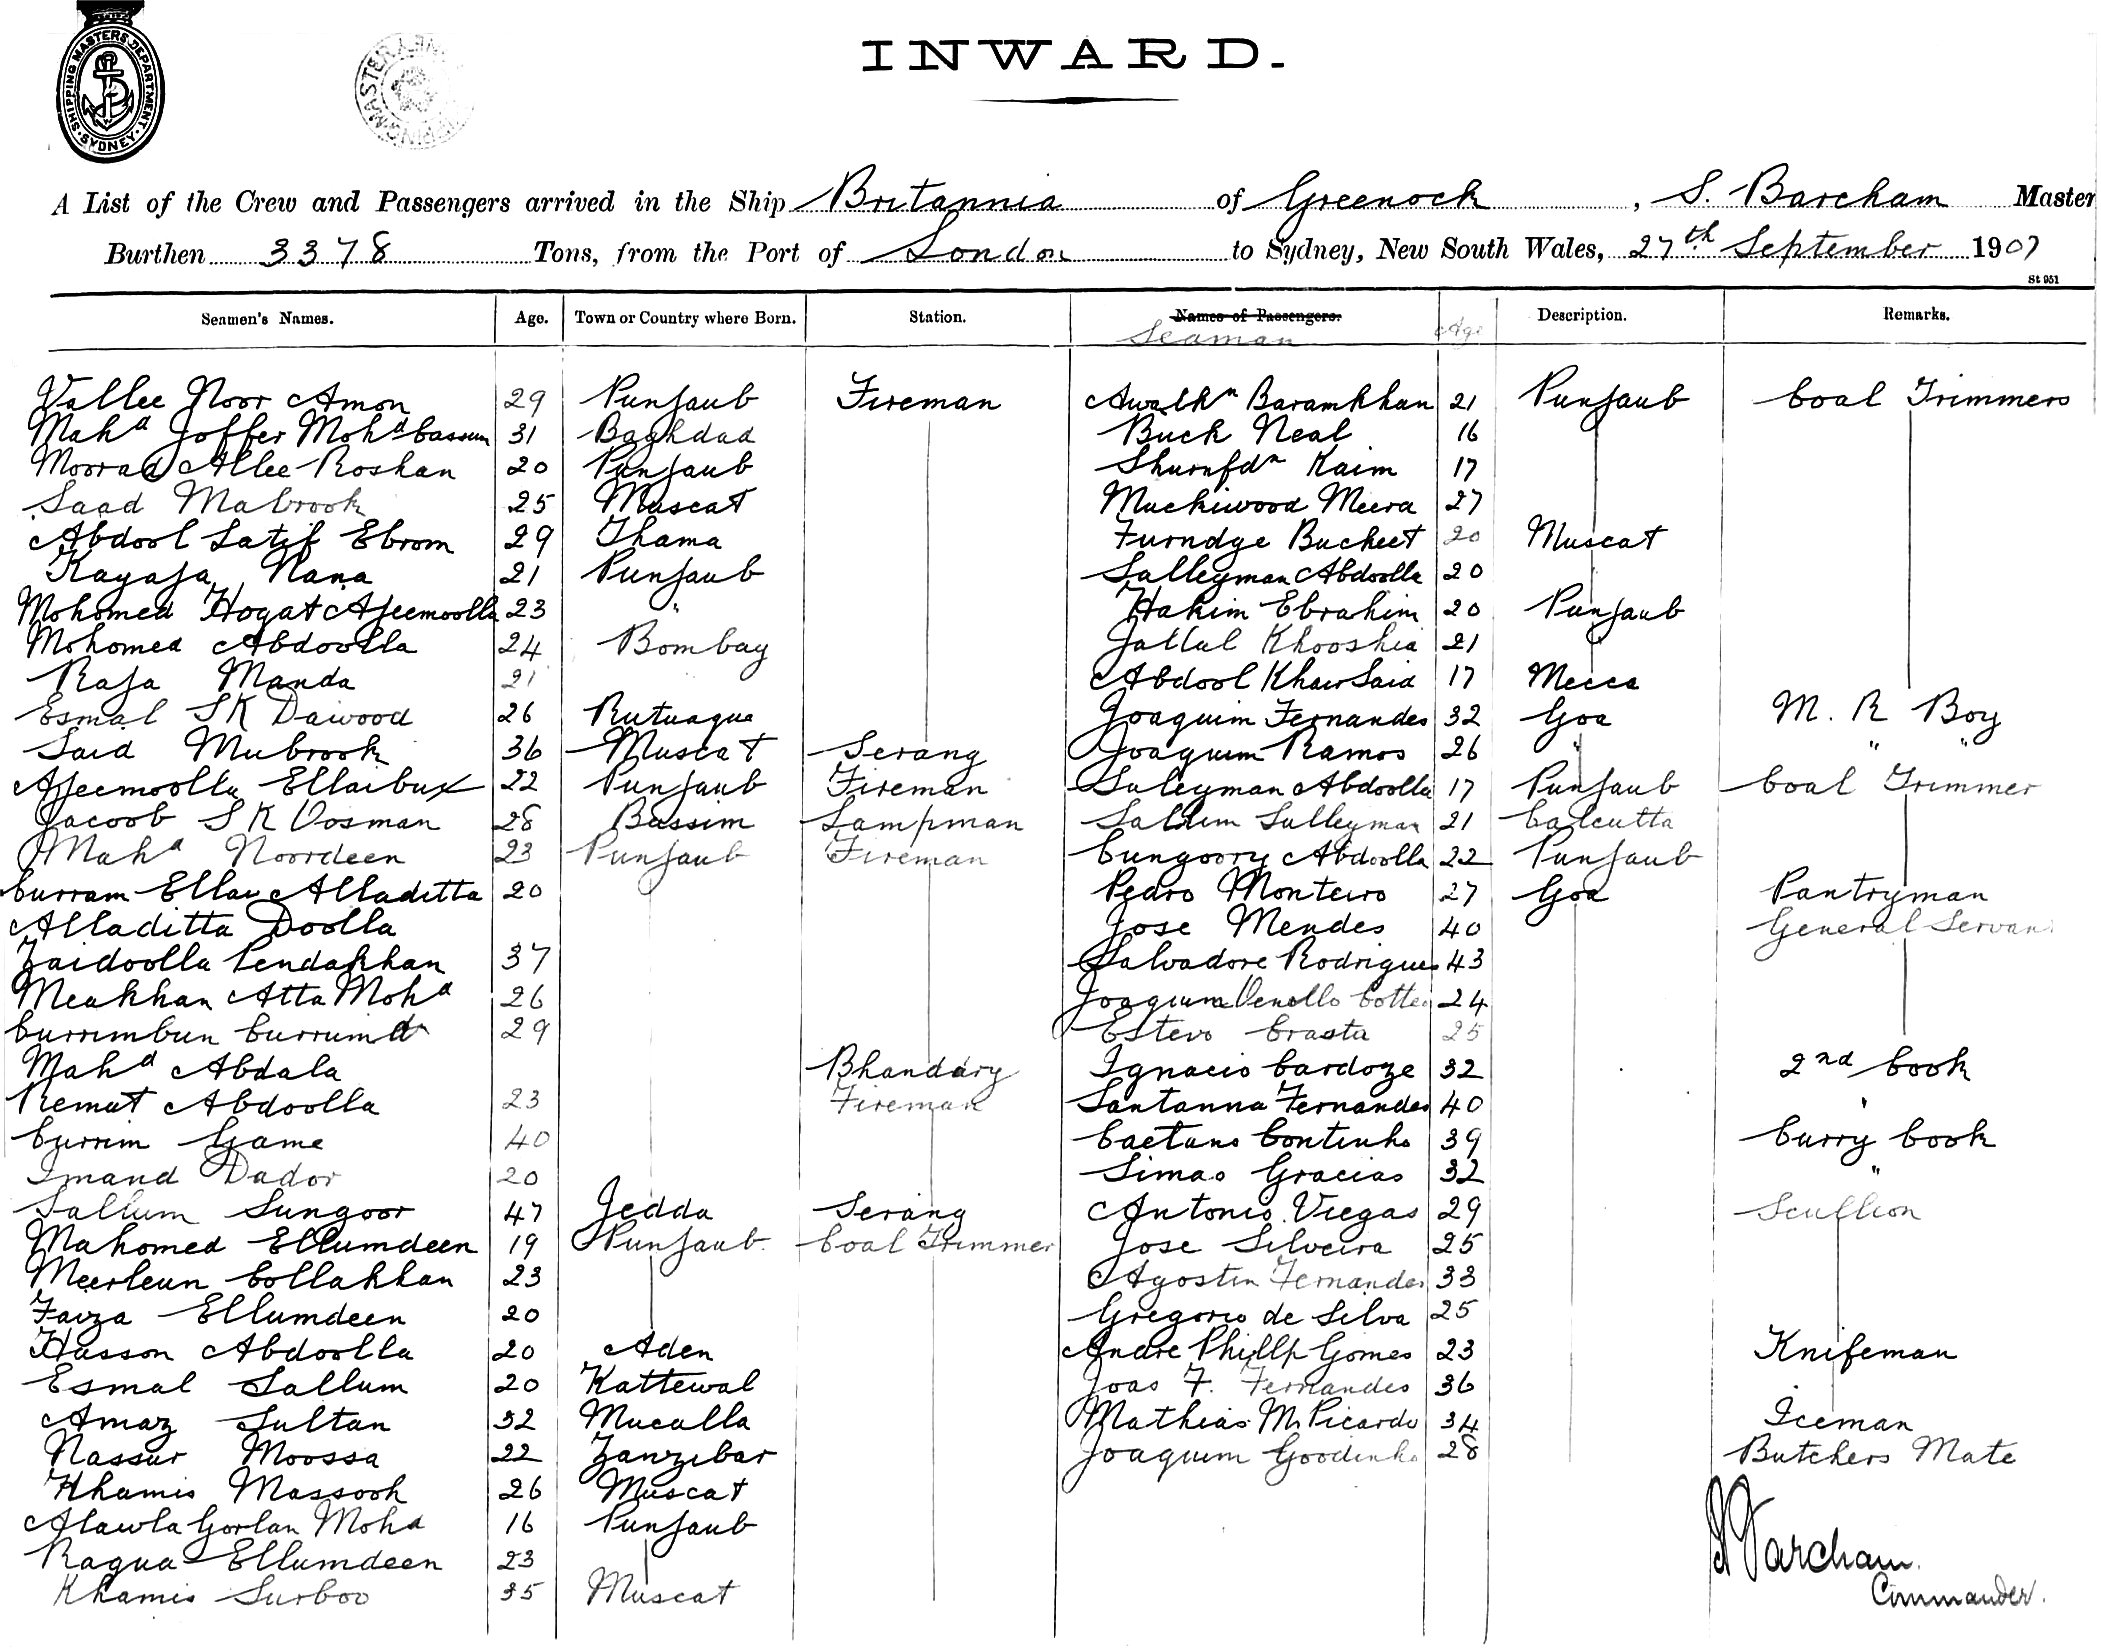 SHIPPING MASTERS DEPARTMENT · SYDNEY ·
INWARD.
A List of the Crew and Passengers arrived in the Ship Britannia of Greenock, S. Barcham Master
Burthen 3378 Tons, from the Port of London to Sydney, New South Wales, 27th September 1907
St 951
Seamen's Names. Age. Town or Country where Born. Station. Names of Passengers. Description. Remarks.
Seaman Age
Vallee Noor Amon 29 Punjaub Fireman Awalkn Baramkhan 21 Punjaub Coal Trimmers
Mahd Joffer Mohd Cassum 31 Baghdad Buck Neal 16
Moorad Allee Roshan 20 Punjaub Shurnfdn Kaim 17
Saad Mabrook 25 Muscat Muckiwood Meera 27
Abdool Latif Ebrom 29 Thama Furndge Bucheet 20 Muscat
Kayaja Nana 21 Punjaub Sulleyman Abdoolla 20
Mohomed Hogat Ajeemoolla 23 " Hakim Ebrahim 20 Punjaub
Mohomed Abdoolla 24 Bombay Jallul Khooshia 21
Raja Manda 21 Abdool Khair Said 17 Mecca
Esmal SK Dawood 26 Rutuague Joaquim Fernandes 32 Goa M. R Boy
Said Mubrook 36 Muscat Serang Joaquim Ramos 26 " " "
Ajeemoolla Ellaibux 22 Punjaub Fireman Suleyman Abdoolla 17 Punjaub Coal Trimmer
Jacoob SK Oosman 28 Bassim Lampman Sallim Sulleyman 21 Calcutta
Mahd Noordeen 23 Punjaub Fireman Cungoory Abdoolla 22 Punjaub
Curram Ellai Alladitta 20 Pedro Monteiro 27 Goa Pantryman
Alladitta Doolla Jose Mendes 40 General Servan
Zaidoolla Pendakhan 37 Salvadore Rodrigues 43
Meakhan Atta Mohd 26 Joaquim Venollo Cotteo 24
Currimbun Currumd 29 Estevo Crasta 25
Mahd Abdala Bhandary Ignacio Cardoze 32 2nd Cook
Remut Abdoolla 23 Fireman Santanna Fernandes 40 "
Currim Game 40 Caetano Continho 39 Curry Cook
Imand Dador 20 Simao Gracias 32 "
Sallum Sungoor 47 Jedda Serang Antonio Viegas 29 Scullion
Mahomed Ellumdeen 19 Punjaub Coal Trimmer Jose Silveira 25
Meerleun Collakhan 23 Agostin Fernandes 33
Faiza Ellumdeen 20 Gregorio de Silva 25
Husson Abdoolla 20 Aden Andre Phillp Gomes 23 Knifeman
Esmal Sallum 20 Kattewal Joao F. Fernandes 36
Amaz Sultan 32 Muculla Mathias M Picardo 34 Iceman
Nassur Moossa 22 Zanzibar Joaquim Goodinho 28 Butchers Mate
Khamis Massook 26 Muscat
Alawla Gorlan Mohd 16 Punjaub
Ragua Ellumdeen 23
S Barcham.
Khamis Surboo 35 Muscat Commander.